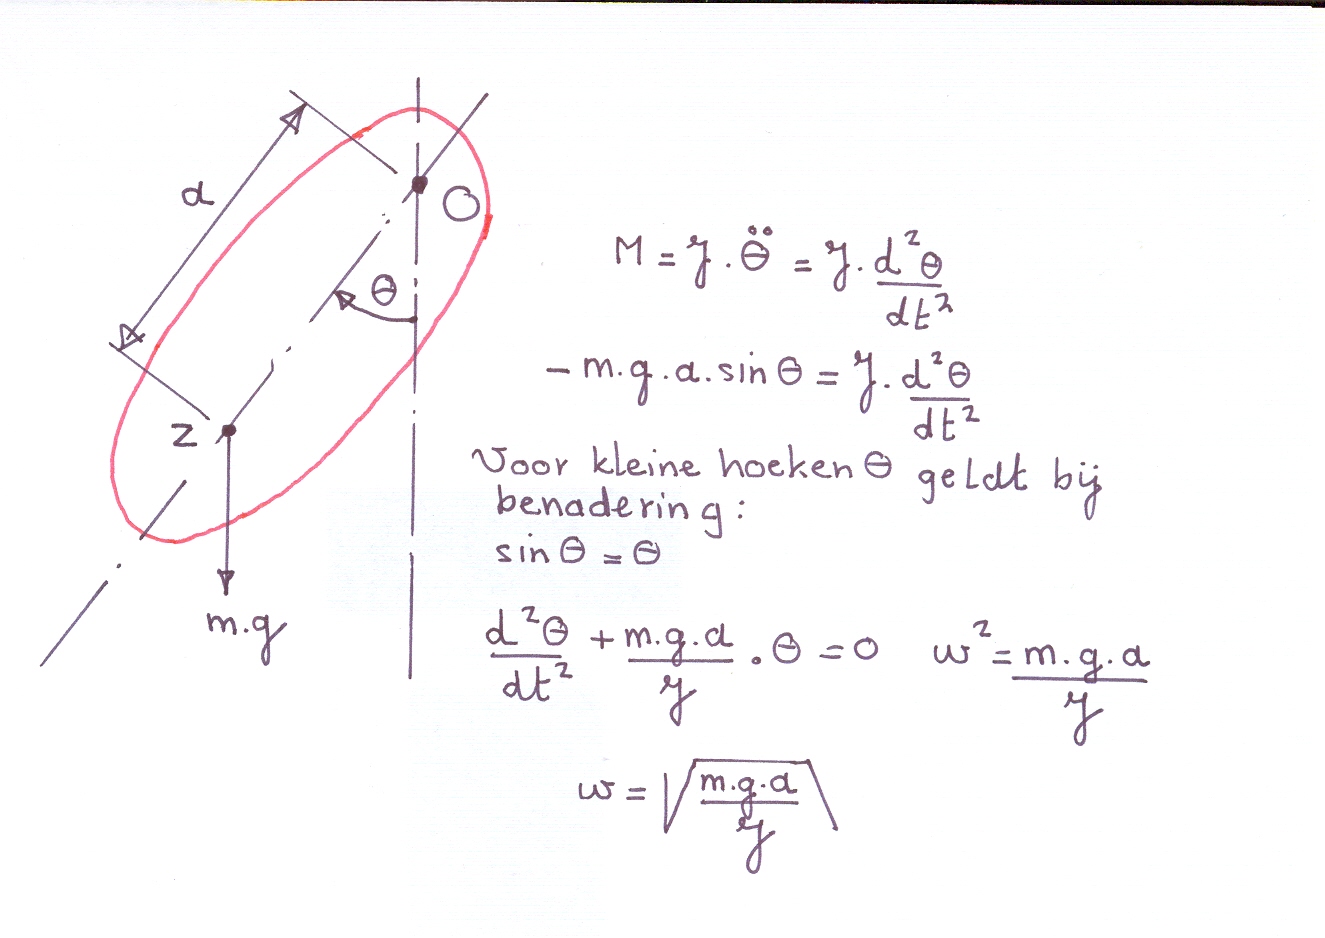 a
O
θ
z
m.g
M = J . θ̈ = J . d²θ/dt²
- m.g.a.sin θ = J . d²θ/dt²
Voor kleine hoeken θ geldt bij
benadering:
sin θ = θ
d²θ/dt² + m.g.a/J . θ = 0   w² = m.g.a/J
w = √(m.g.a/J)